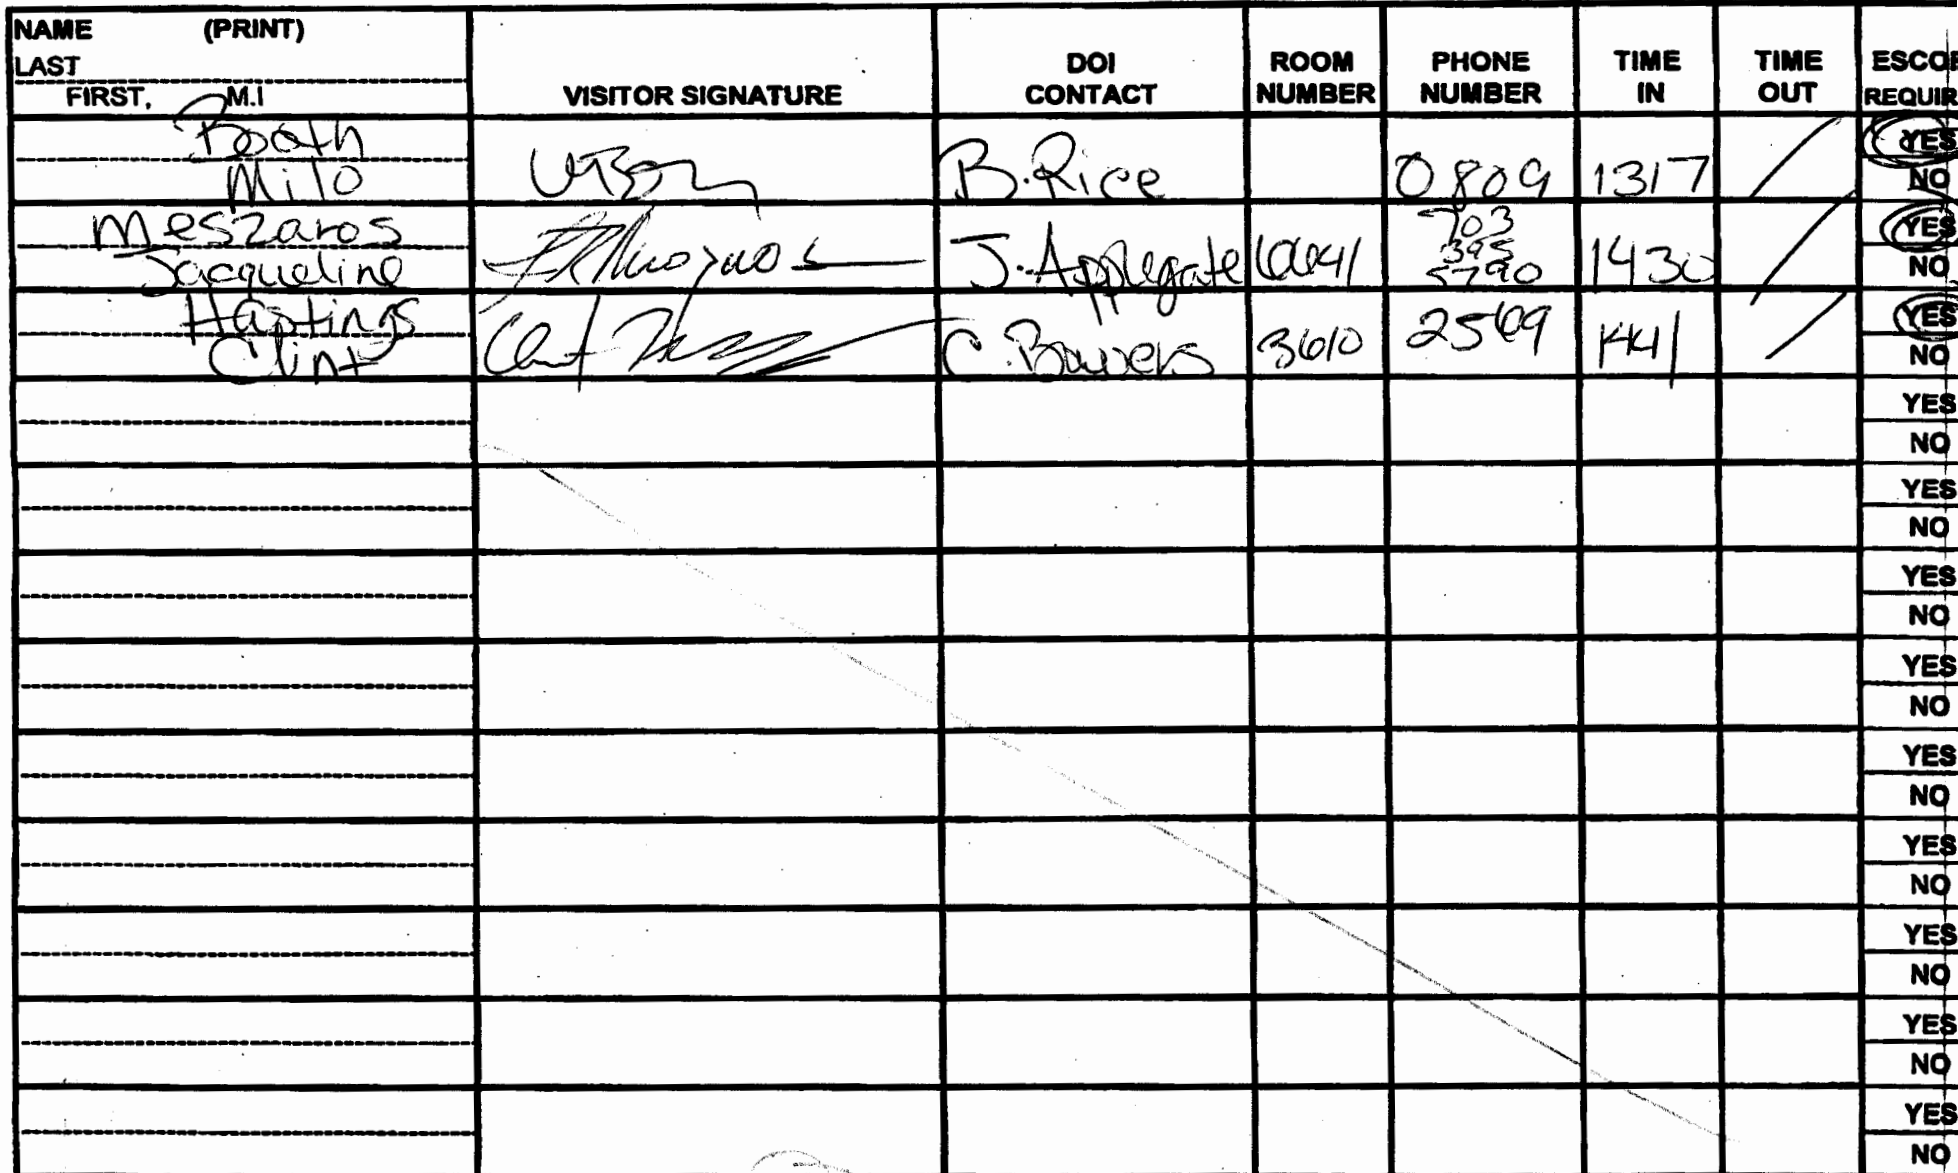 NAME (PRINT)
LAST
FIRST, M.I
VISITOR SIGNATURE
DOI CONTACT
ROOM NUMBER
PHONE NUMBER
TIME IN
TIME OUT
ESCOR
REQUIR
Booth
Milo
B. Rice
0809
1317
YES
NO
Meszaros
Jacqueline
J. Applegate
6641
703
395
5790
1430
YES
NO
Hastings
Clint
C. Bowers
3610
2569
1441
YES
NO
YES
NO
YES
NO
YES
NO
YES
NO
YES
NO
YES
NO
YES
NO
YES
NO
YES
NO